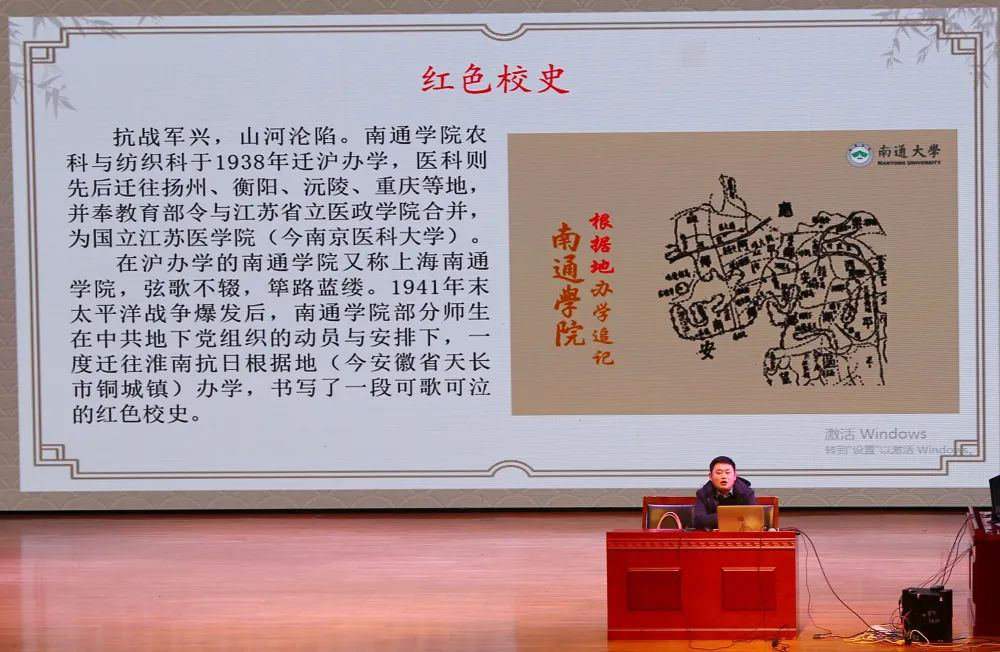 红色校史
抗战军兴，山河沦陷。南通学院农
科与纺织科于1938年迁沪办学，医科则
先后迁往扬州、衡阳、沅陵、重庆等地，
并奉教育部令与江苏省立医政学院合并，
为国立江苏医学院（今南京医科大学）。
在沪办学的南通学院又称上海南通
学院，弦歌不辍，筚路蓝缕。1941年末
太平洋战争爆发后，南通学院部分师生
在中共地下党组织的动员与安排下，一
度迁往淮南抗日根据地（今安徽省天长
市铜城镇）办学，书写了一段可歌可泣
的红色校史。
南通大學
NANTONG UNIVERSITY
根据地办学追记
南通學院
安
激活 Windows
转到"设置"以激活 Windows。